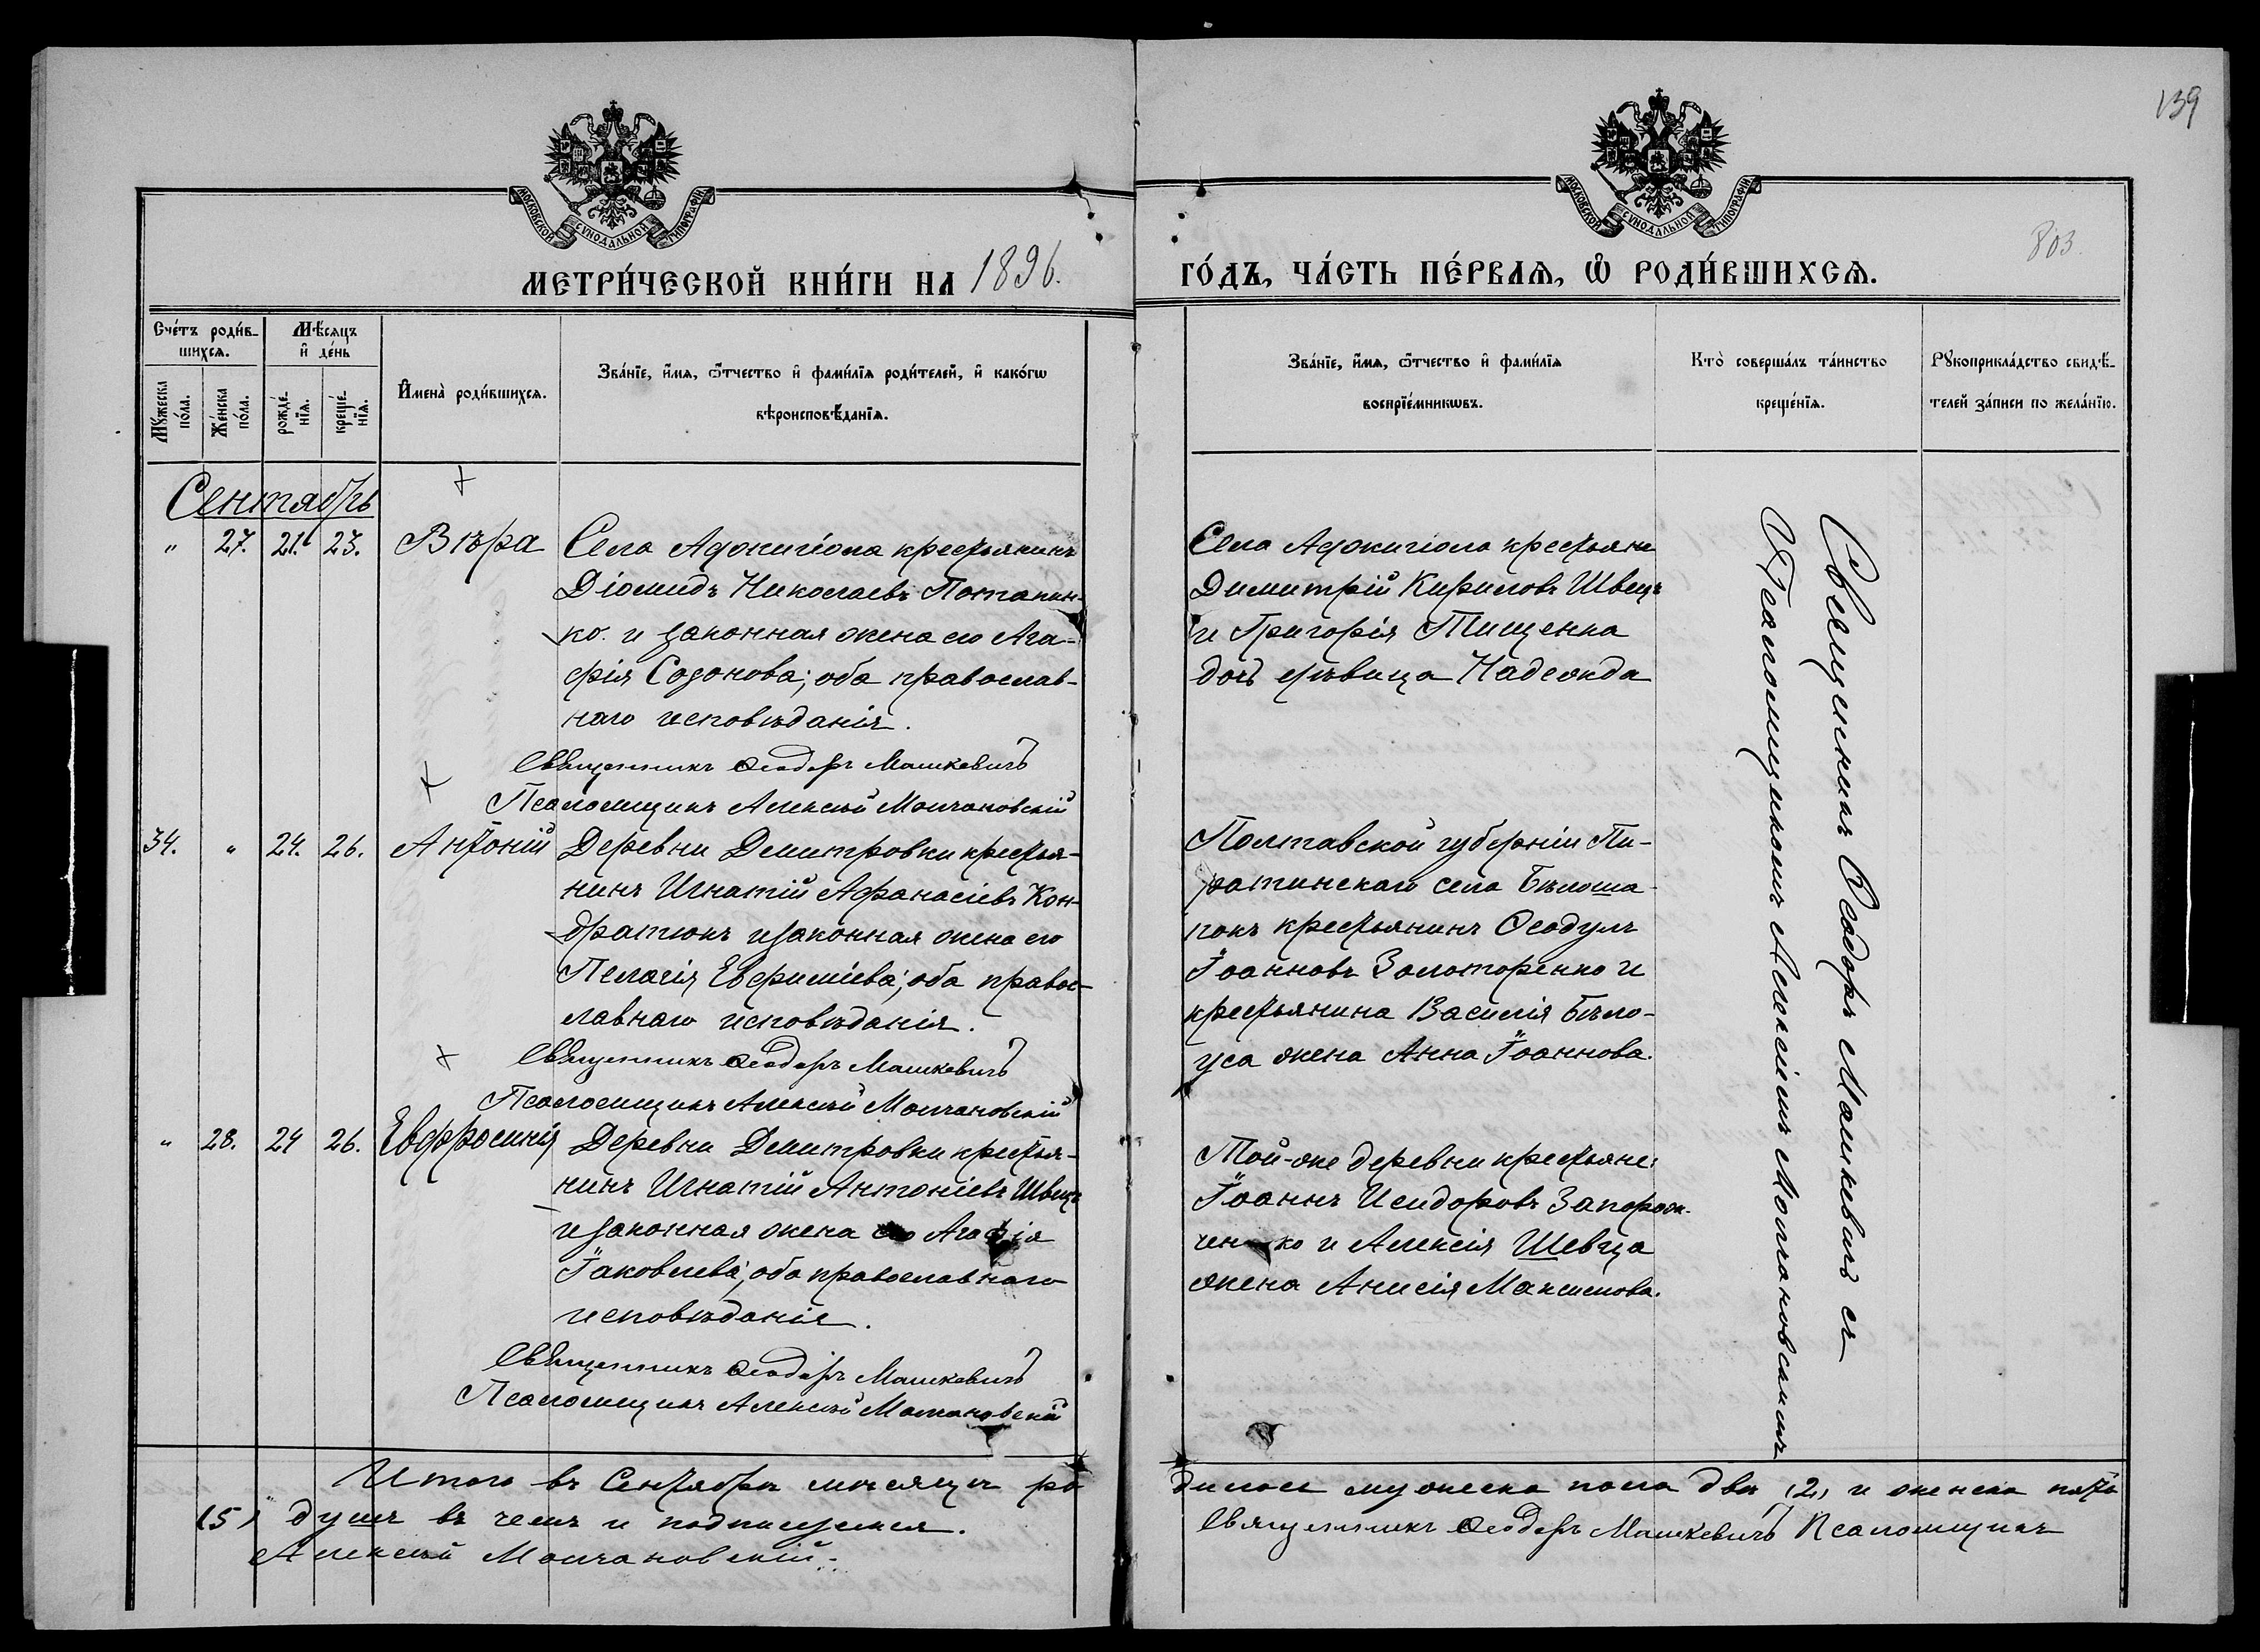 139
803.
МОСКОВСКОЙ СѴНОДАЛЬНОЙ ТИПОГРАФІИ
МОСКОВСКОЙ СѴНОДАЛЬНОЙ ТИПОГРАФІИ
МЕТРИ́ЧЕСКОЙ КНИ́ГИ НА 1896.
ГО́ДЪ, ЧА́СТЬ ПЕ́РВАЯ, Ѽ РОДИ́ВШИХСЯ.
Сче́тъ роди́в-
шихся.
Мѣ́сяцъ
и҆ де́нь
Мꙋ́жеска по́ла.
Же́нска по́ла.
рожде́-нїя.
креще́-нїя.
И҆мена̀ роди́вшихся.
Зва́нїе, и҆́мя, ѻ҆́тчество и҆ фами́лїя роди́телей, и҆ како́гѡ
вѣроисповѣ́данїя.
Зва́нїе, и҆́мя, ѻ҆́тчество и҆ фами́лїя
воспрїе́мникѡвъ.
Кто̀ соверша́лъ та́инство
креще́нїя.
Рꙋкоприкла́дство свидѣ́-
телей за́писи по жела́нїю.
Сентябрь
" 27. 21. 23. Вѣра
Села Аджигіола крестьянинъ
Діомидъ Николаевъ Потапен-
ко и законная жена его Ага-
фія Созонова; оба православ-
наго исповѣданія.
Священникъ Ѳеодоръ Машкевичъ
Псаломщикъ Алексѣй Молчановскій
Села Аджигіола крестьяне
Димитрій Кириловъ Швецъ
и Григорія Тищенка
дочь дѣвица Надежда
34. " 24. 26. Антоній
Деревни Демитровки крестья-
нинъ Игнатій Афанасіевъ Кон-
дратюкъ и законная жена его
Пелагія Евфиміева; оба правос-
лавнаго исповѣданія.
Священникъ Ѳеодоръ Машкевичъ
Псаломщикъ Алексѣй Молчановскій
Полтавской губерніи Пи-
рятинскаго села Бѣлоша-
покъ крестьянинъ Ѳеодулъ
Іоанновъ Золоторенко и
крестьянина Василія Бѣло-
уса жена Анна Іоаннова.
" 28. 24 26. Евфросинія
Деревни Демитровки крестья-
нинъ Игнатій Антоніевъ Швецъ
и законная жена его Агафія
Іаковлева; оба православнаго
исповѣданія.
Священникъ Ѳеодоръ Машкевичъ
Псаломщикъ Алексѣй Молчановскій
Той-же деревни крестьяне:
Іоаннъ Исидоровъ Запорож-
ченко и Алексія Шевца
жена Анисія Максимова.
Священникъ Ѳеодоръ Машкевичъ съ
Псаломщикомъ Алексіемъ Молчановскимъ
Итого въ Сентябрѣ мѣсяцѣ ро
дилось мужеска пола два (2) и женска пять
(5) душъ въ чемъ и подписуемся.
Священникъ Ѳеодоръ Машкевичъ Псаломщикъ
Алексѣй Молчановскій.